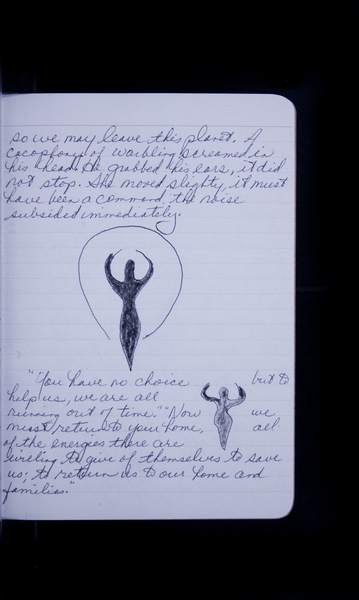 so we may leave this planet. A
cacophony of warbling screamed in
his head. He grabbed his ears, it did
not stop. She moved slighty, it must
have been a command, the noise
subsided immediately.
"You have no choice but to
help us, we are all
running out of time." "Now we
must return to your home, all
of the energies there are
willing to give of themselves to save
us; to return us to our home and
families."